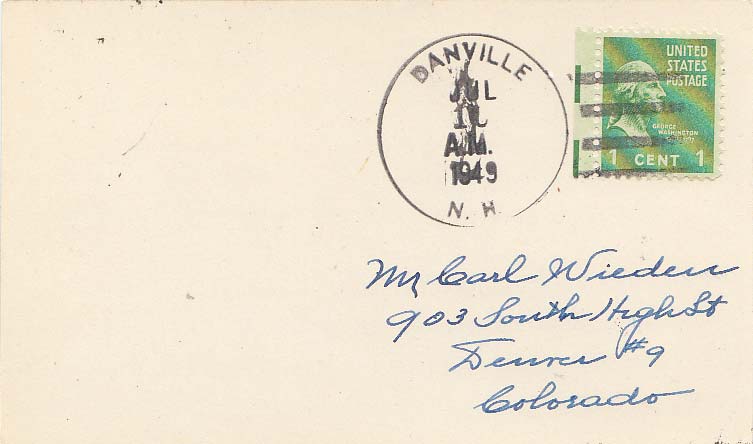 DANVILLE
JUL
A.M.
1949
N. H.
UNITED
STATES
POSTAGE
GEORGE
WASHINGTON
1 CENT 1
Mr Carl Wieden
903 South High St
Denver #9
Colorado